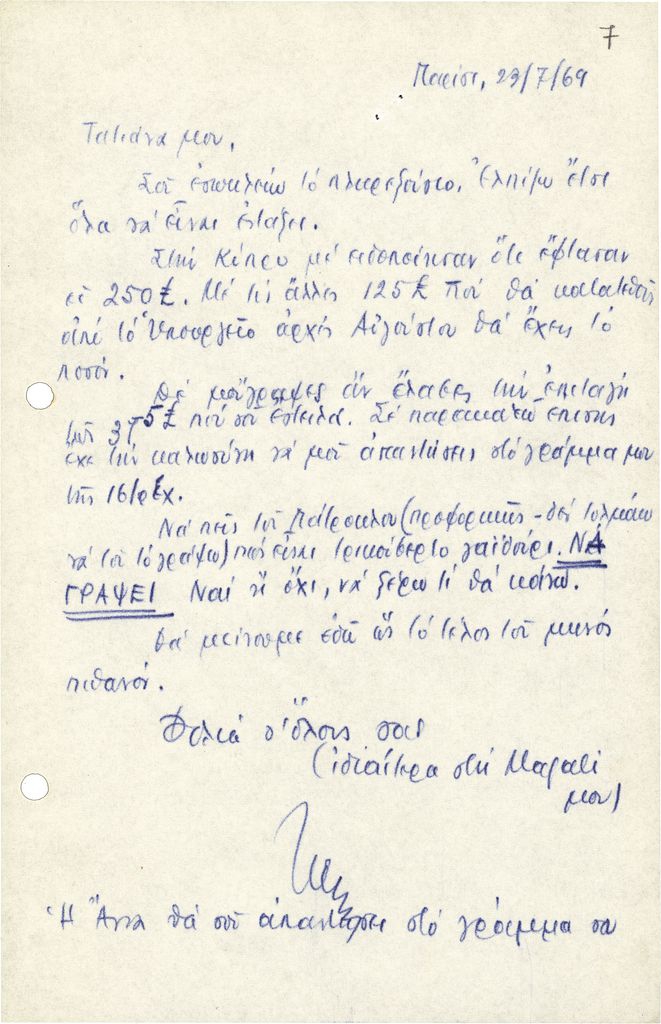 7
Παρίσι, 23/7/69
Τατιάνα μου,
Σοῦ ἐσωκλείω τό πληρεξούσιο. Ἐλπίζω ἔτσι
ὅλα νά εἶναι ἐντάξει.
Στήν Κύπρο μέ εἰδοποίησαν ὅτι ἔφτασαν
οἱ 250£. Μέ τίς ἄλλες 125£ πού θά κατατεθοῦν
ἀπό τό Ὑπουργεῖο ἀρχές Αὐγούστου θά ἔχεις τό
ποσόν.
Θά μοῦγραφες ἄν ἔλαβες τήν ἐπιταγή
τῶν 375£ πού σοῦ ἔστειλα. Σέ παρακαλῶ ἐπίσης
ἔχε τήν καλωσύνη νά μοῦ ἀπαντήσεις στό γράμμα μου
τῆς 16/τρέχ.
Νά πεῖς τοῦ Πάτροκλου (προφορικῶς - δέν τολμάω
νά τοῦ τό γράψω) πώς εἶναι τρισκατάρατο γαϊδούρι. ΝΑ
ΓΡΑΨΕΙ Ναί ἤ ὄχι, νά ξέρω τί θά κάνω.
Θά μείνουμε ἐδῶ ὥς τό τέλος τοῦ μηνός
πιθανόν.
Φιλιά σ' ὅλους σας
(ἰδιαίτερα στή Magali
μου)
Ἡ Ἄννα θά σοῦ ἀπαντήσει στό γράμμα σου